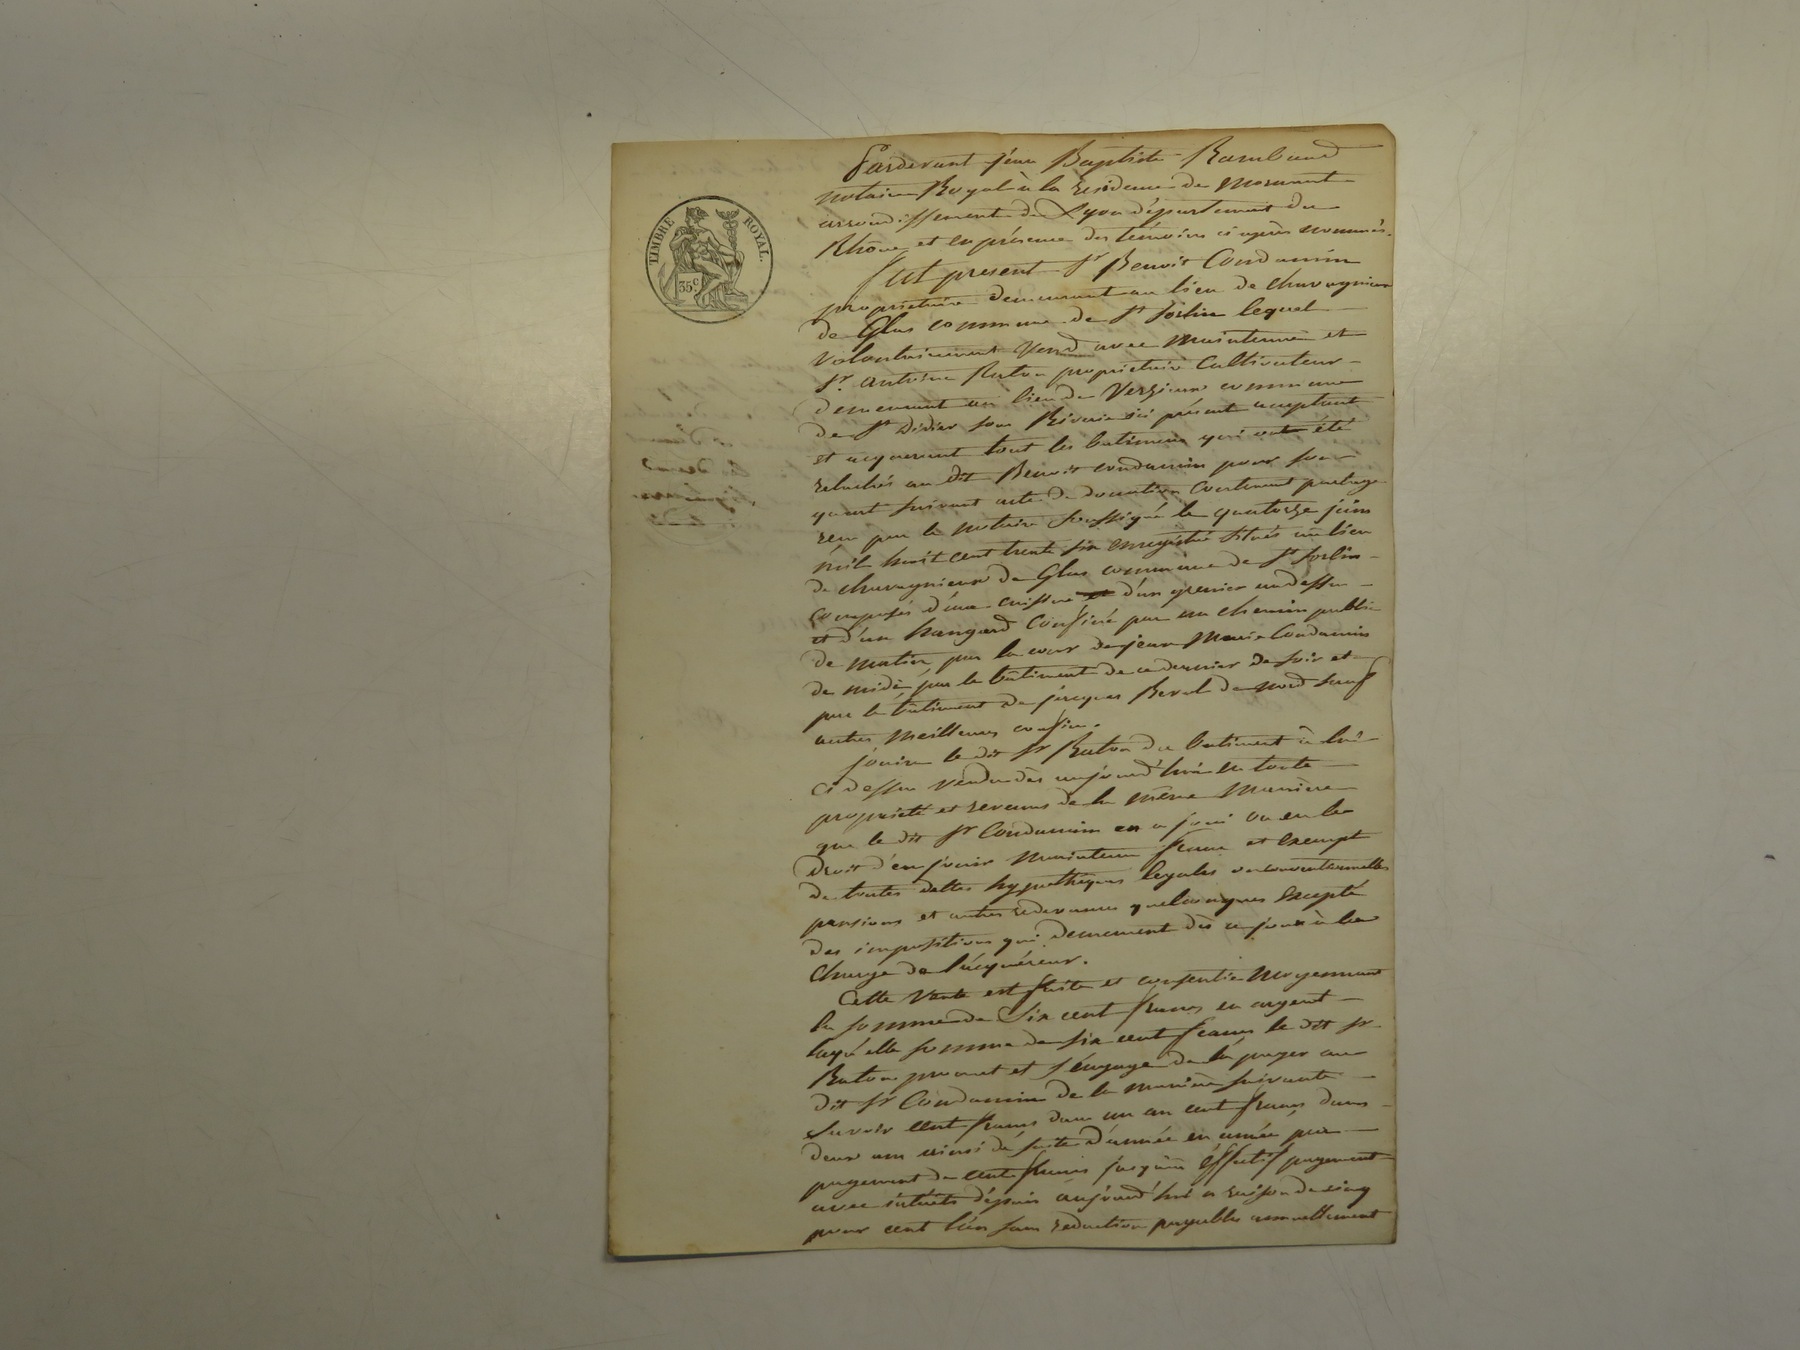 TIMBRE ROYAL.
35c.
Pardevant jean Baptiste Rambaud
notaire Royal à la residence de Mornant
arrondissement de Lyon département du
Rhône et en présence des témoins ci après nommés.
fut present Sr Benoit Condamin
propriétaire demeurant au lieu de chavagnieux
de Glas commune de St Sorlin lequel
volontairement vend avec maintenue et
Sr. antoine Raton proprietaire Cultivateur
demeurant au lieu de Verzieux commune
de St Didier sous Riverie ici présent acceptant
et acquerant tout les batimens qui ont été
relachés au dit Benoit condamin pour son
quart suivant acte de donation contenant partage
reçu par le notaire soussigné le quatorze juin
mil huit cent trente six enregistré situés au lieu
de chavagnieux de Glas commune de St Sorlin
composés d'une cuisine d'un grenier au dessus
et d'un hangard confiné par un chemin public
de matin, par la cour de jean Marie Condamin
de midi, par le bâtiment de ce dernier de soir et
par le bâtiment de jacques Beral de nord sauf
autres meilleurs confins.
jouira le dit Sr Raton du batiment à lui
ci dessus vendu dès aujourd'hui en toute
propriété et revenus de la même manière
que le dit Sr Condamin en a joui ou eu le
droit d'en jouir maintenu franc et exempt
de toutes dettes hypothèques legales ou conventionnelles
pensions et autres redevances quelconques excepté
des impositions qui demeurent dès ce jour à la
charge de l'acquéreur.
Cette vente est faite et consentie moyennant
la somme de Six cent francs en argent
laqu'elle somme de six cent francs le dit Sr
Raton promet et s'engage de la payer au
dit Sr Condamin de la manière suivante
Savoir cent francs dans un an cent francs dans
deux ans ainsi de suite d'année en année par
payement de cent francs jusqu'au éffectif payement
avec intérêts dépuis aujourd'hui à raison de cinq
pour cent l'an sans reduction payables annuellement